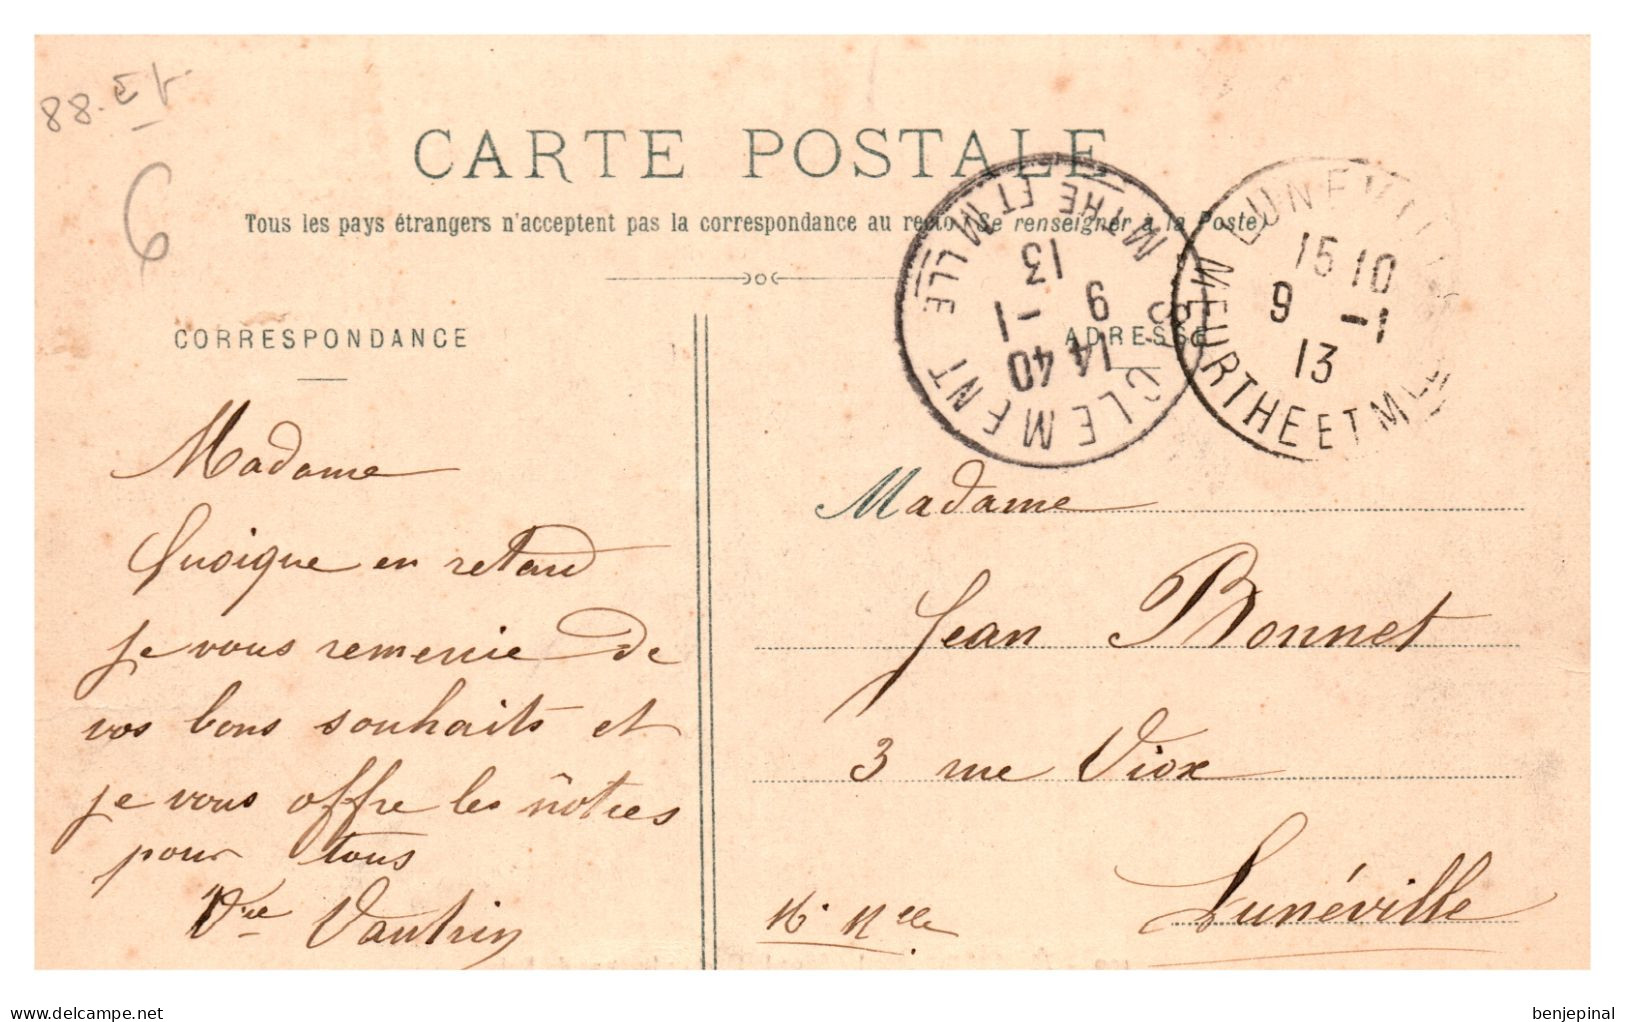 88.
6
CARTE POSTALE
Tous les pays étrangers n'acceptent pas la correspondance au recto (Se renseigner à la Poste)
CORRESPONDANCE
Madame
Quoique en retard
je vous remercie de
vos bons souhaits et
je vous offre les nôtres
pour tous
Vve Vautrin
CLEMENT
MTHE ET MLLE
14 40
9 -1
13
LUNEVILLE
MEURTHE ET M
15 10
9 -1
13
ADRESSE
Madame
Jean Bonnet
3 rue Viox
Lunéville
M. Melle
delcampe.net
benjepinal